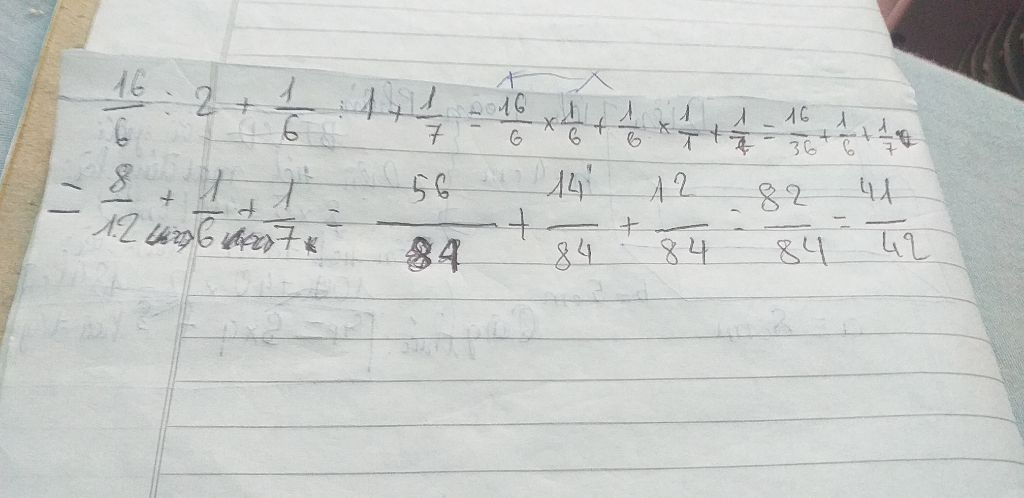 16/6 : 2 + 1/6 : 1 + 1/7 = 16/6 × 1/6 + 1/6 × 1/1 + 1/7 = 16/36 + 1/6 + 1/7
= 8/12 + 1/6 + 1/7 = 56/84 + 14/84 + 12/84 = 82/84 = 41/42